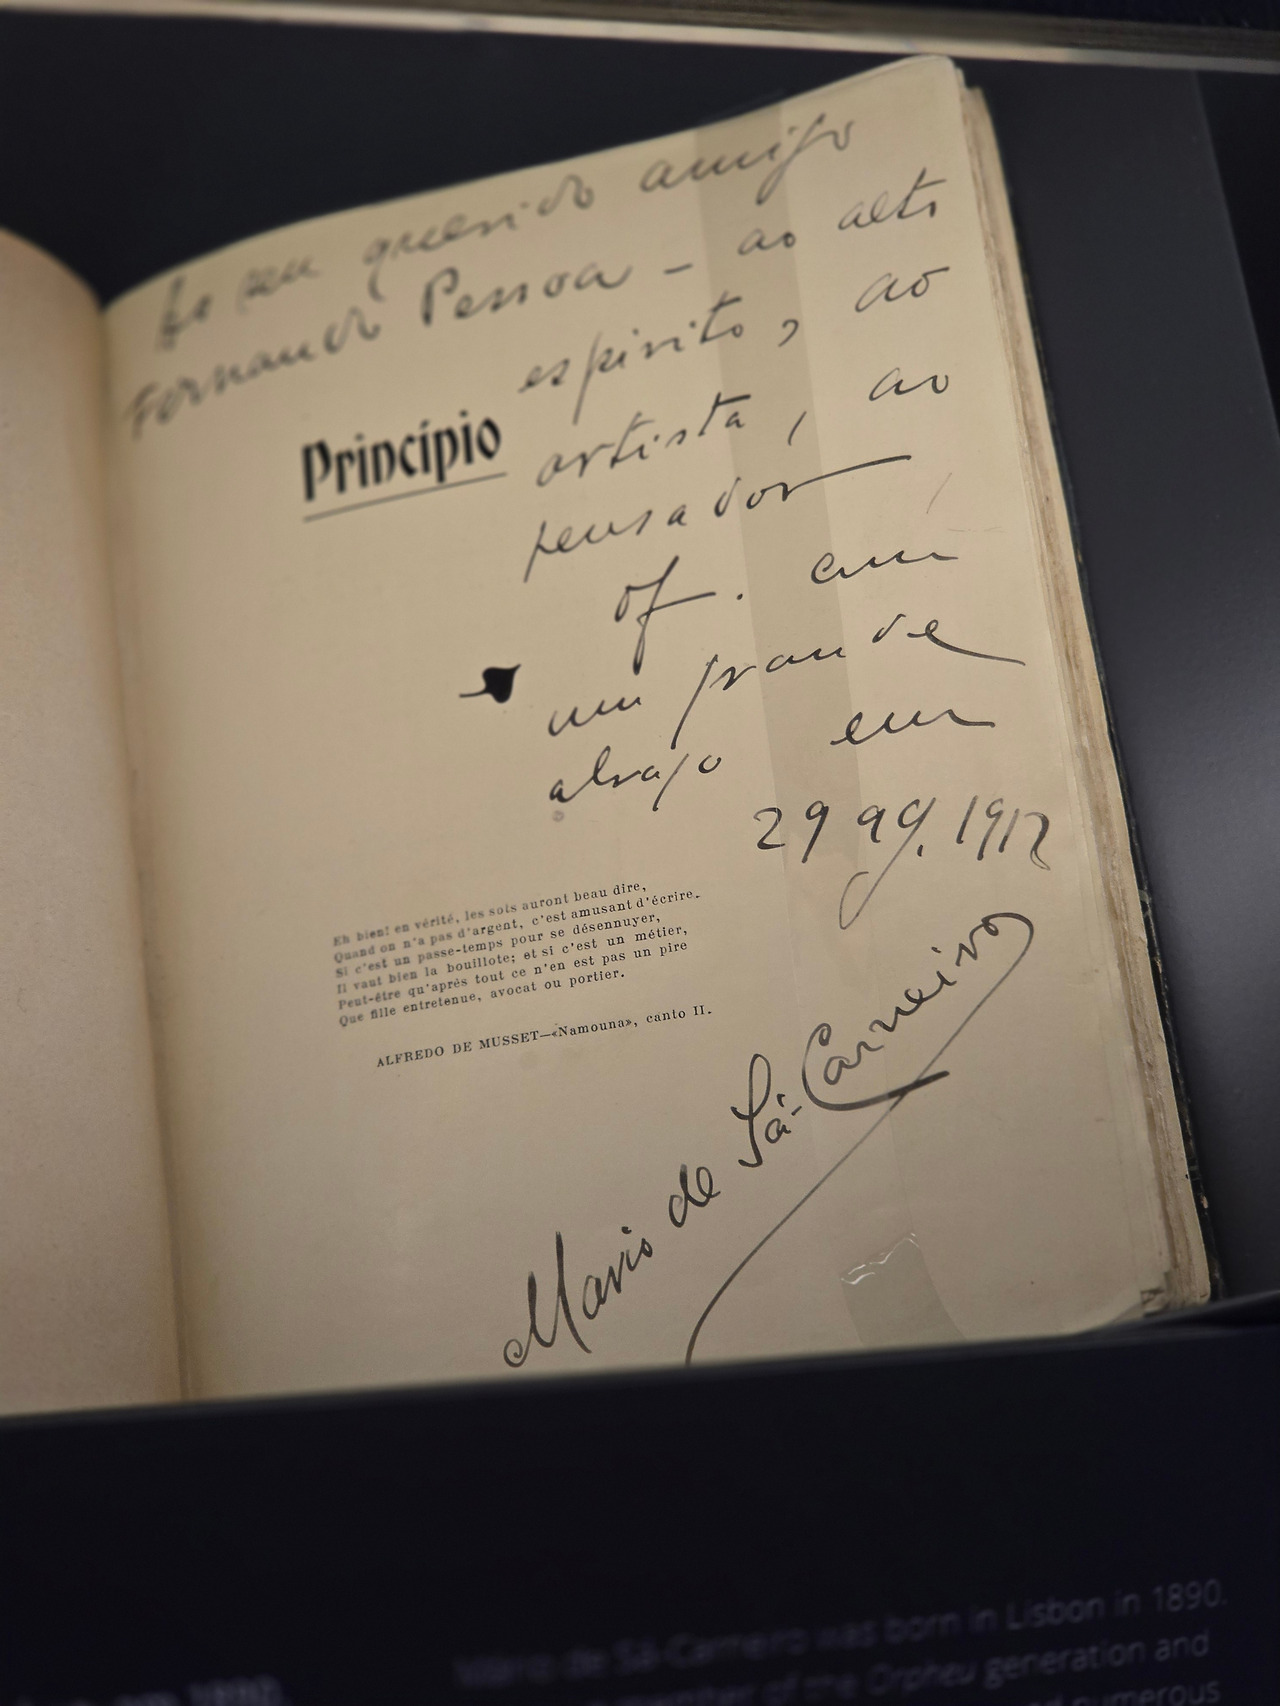 Ao seu querido amigo
Fernando Pessoa - ao alto
espirito, ao
artista, ao
pensador
of. com
um grande
abraço em
29 ag. 1912
Princípio
Eh bien! en vérité, les sots auront beau dire,
Quand on n'a pas d'argent, c'est amusant d'écrire.
Si c'est un passe-temps pour se désennuyer,
Il vaut bien la bouillote; et si c'est un métier,
Peut-être qu'après tout ce n'en est pas un pire
Que fille entretenue, avocat ou portier.
ALFREDO DE MUSSET—«Namouna», canto II.
Mario de Sá-Carneiro
em 1890.
Mário de Sá-Carneiro was born in Lisbon in 1890.
member of the Orpheu generation and
numerous